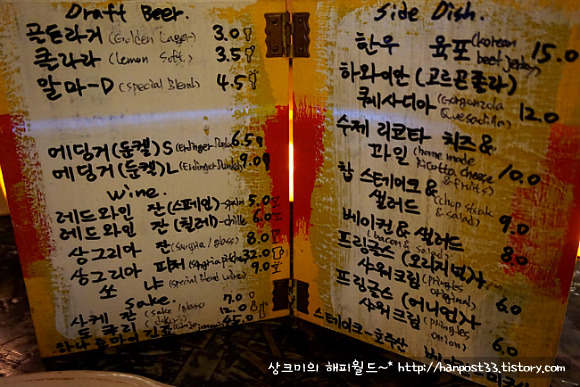 Draft Beer.
골든라거 (Golden Lager) 3.0
클라라 (Lemon Soft.) 3.5
알마-D (Special Blend) 4.5
에딩거 (둔켈) S 6.5
에딩거 (둔켈) L 9.0
Wine.
레드와인 잔 (스페인)-spain 5.0
레드와인 잔 (칠레)-chile 6.0
상그리아 잔 (Sangria/glass) 8.0
상그리아 32.0
쏘냐 (Special blend wine) 9.0
Sake.
사케 잔 (Sake/glass) 7.0
12.0
Side Dish.
한우 육포 (korean beef jerky) 15.0
하와이안 (고르곤졸라)
퀘사디아 (Gorgonzola Quesadilla) 12.0
수제 리코타 치즈 &
과인 (home made ricotta cheese & fruits) 10.0
찹 스테이크 &
샐러드 (chop steak & salad) 9.0
베이컨 & 샐러드
(bacon & salad) 8.0
프링글스 (오리지널)
사워크림 (pringles original) 6.0
프링글스 (어니언)
사워크림 (pringles onion) 6.0
스테이크-호주산
상크미의 해피월드~* http://hanpost33.tistory.com